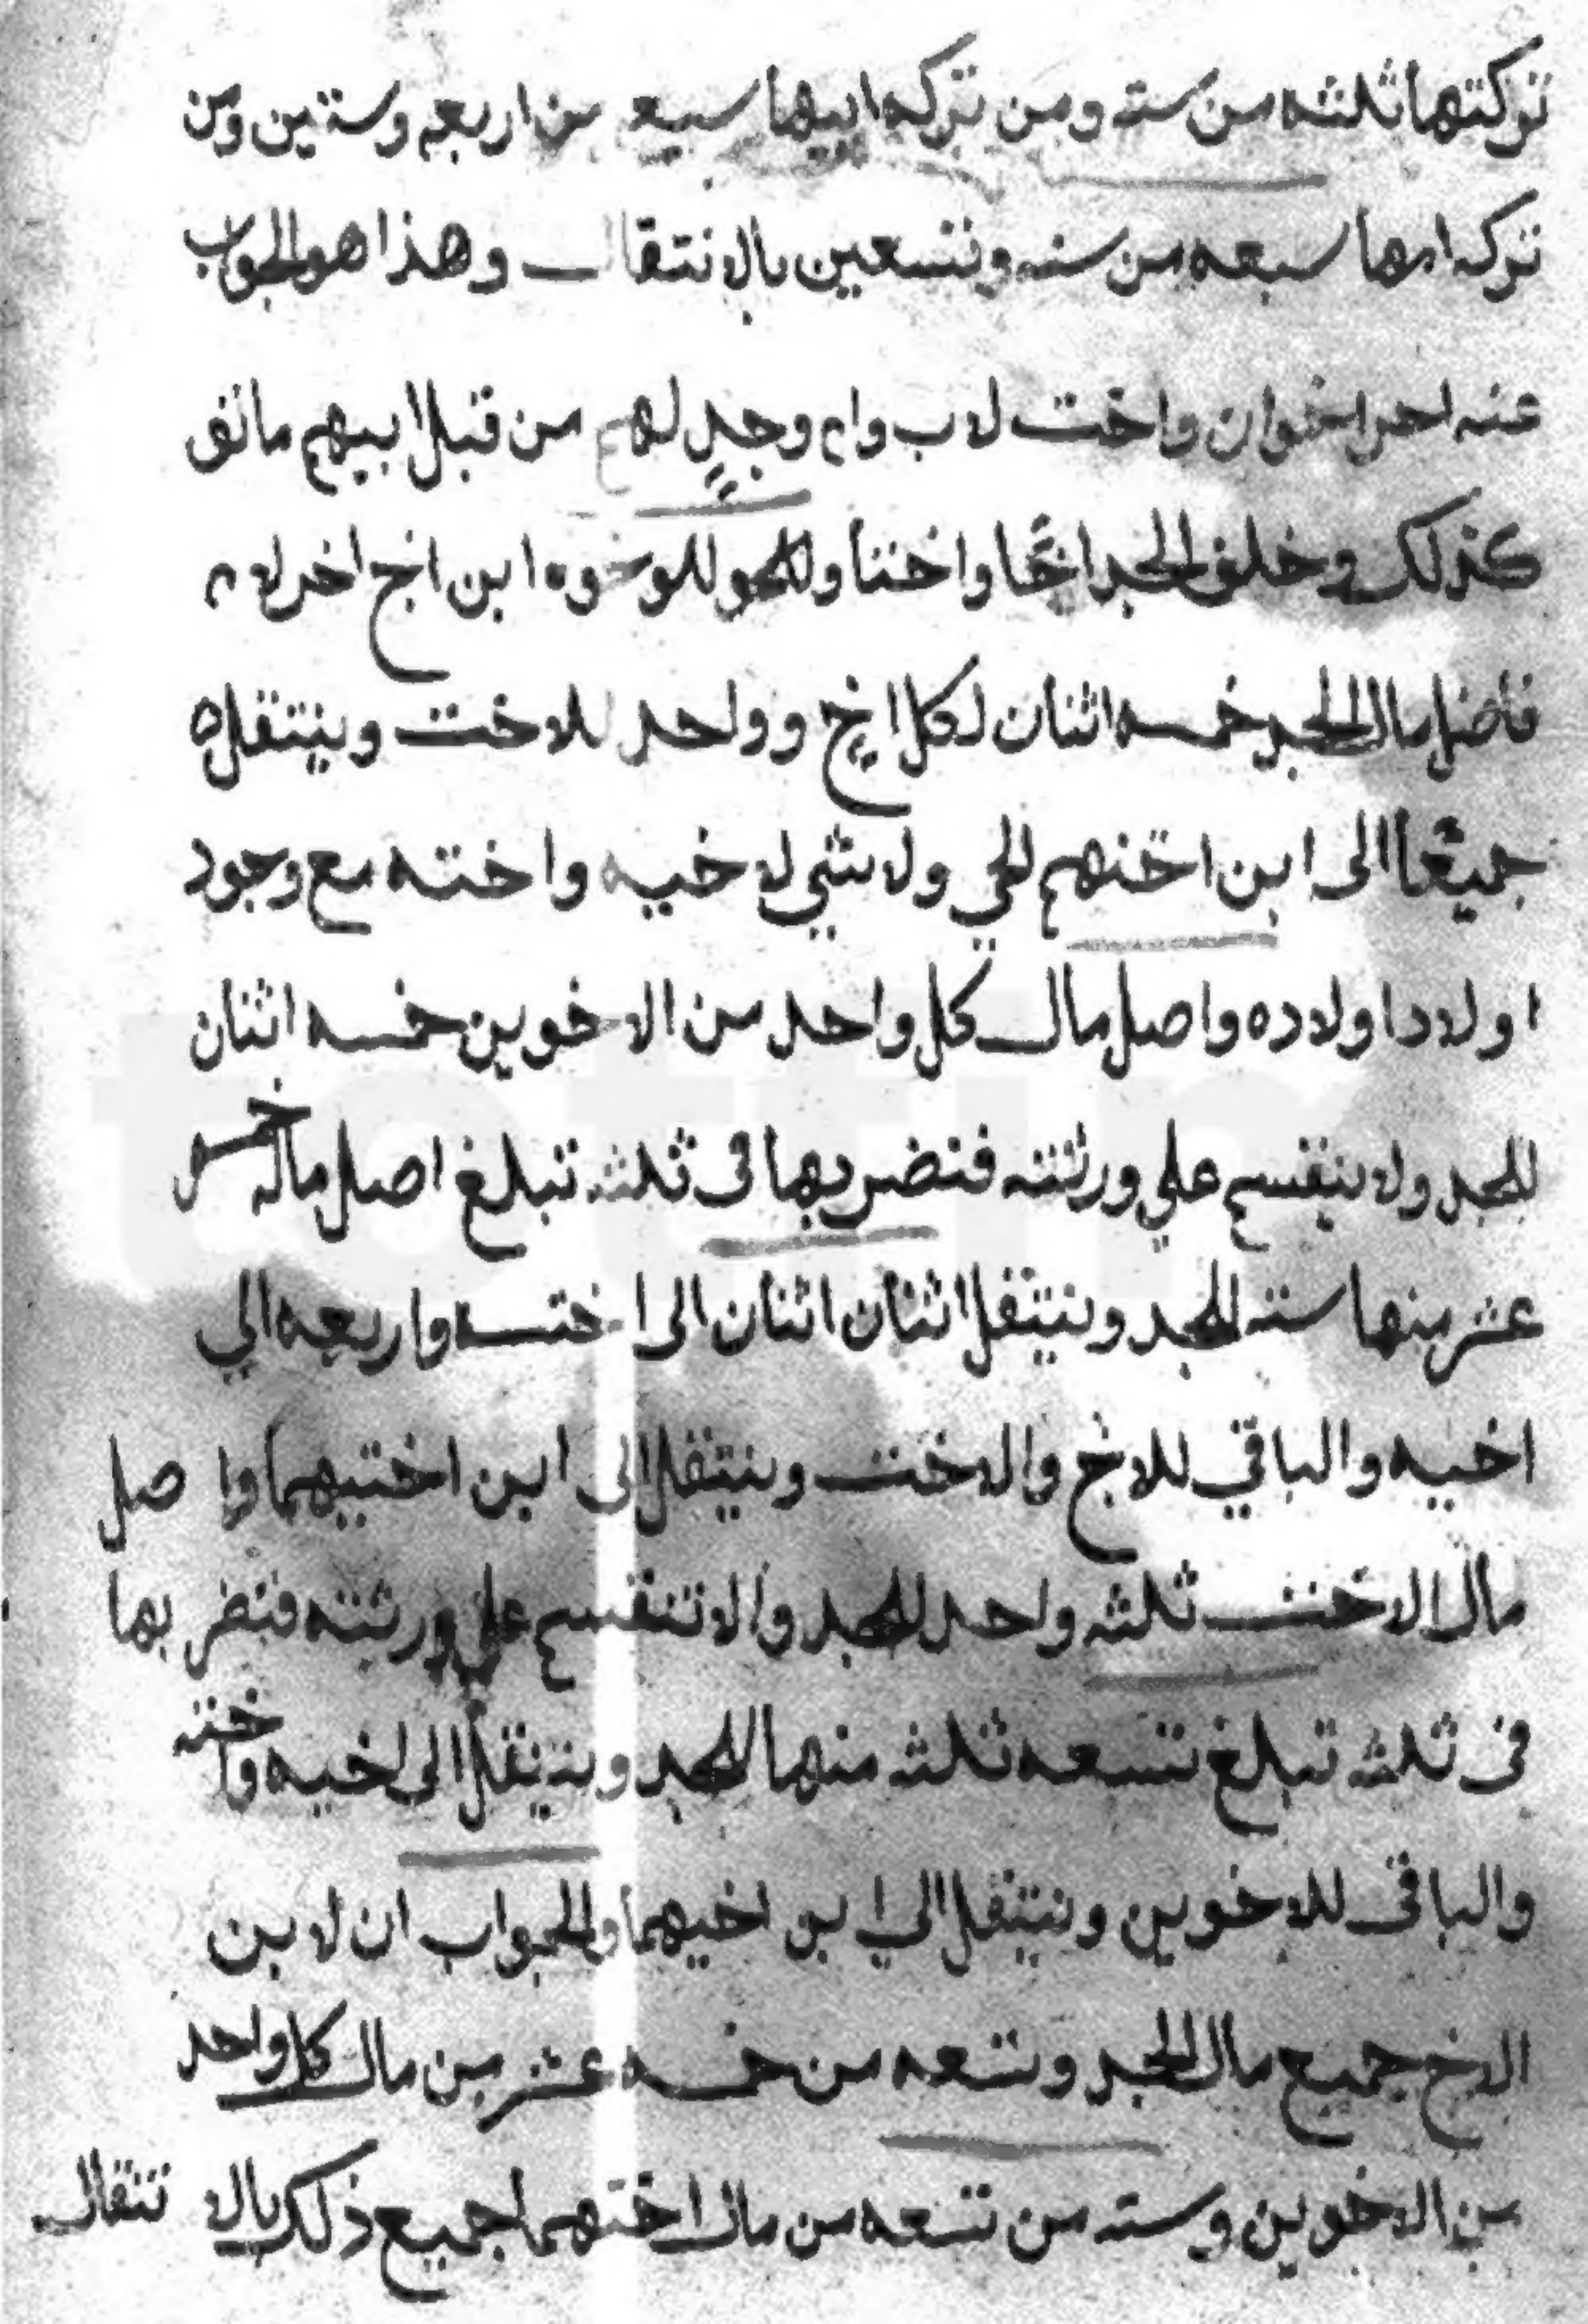 تركتها ثلثه من سته ومن تركه ابيها سبع من اربعه وستين ومن
تركه امها سبعه من سته وتسعين بالانتقال وهذا هو الجواب
عنه اخر اخوان واخت لاب وام وجد لهم من قبل ابيهم ماتوا
كذلك وخلف الجد اخا واختا وللاخوه ابن اخ اخر لام
فاصل مال الجد خمسه اثنان لكل اخ وواحد للاخت وينتقل
جميعا الى ابن اختهم الحي ولا شي لاخيه واخته مع وجود
اولاد اولاده واصل مال كل واحد من الاخوين خمسه اثنان
للجد ولا ينقسم علي ورثته فتضربها فى ثلثه تبلغ اصل ماله خمسه
عشر منها سته للجد وينتقل اثنان اثنان الى اخته واربعه الي
اخيه والباقي للاخ والاخت وينتقل الى ابن اختيهما واصل
مال الاخت ثلثه واحد للجد والا تنقسم علي ورثته فتضربها
فى ثلثه تبلغ تسعه ثلثه منها للجد وينتقل الى اخيه واخته
والباقى للاخوين وينتقل الي ابن اخيهما والجواب ان لابن
الاخ جميع مال الجد وتسعه من خمسه عشر من مال كل واحد
من الاخوين وسته من تسعه من مال اختهما جميع ذلك بالا نتقال